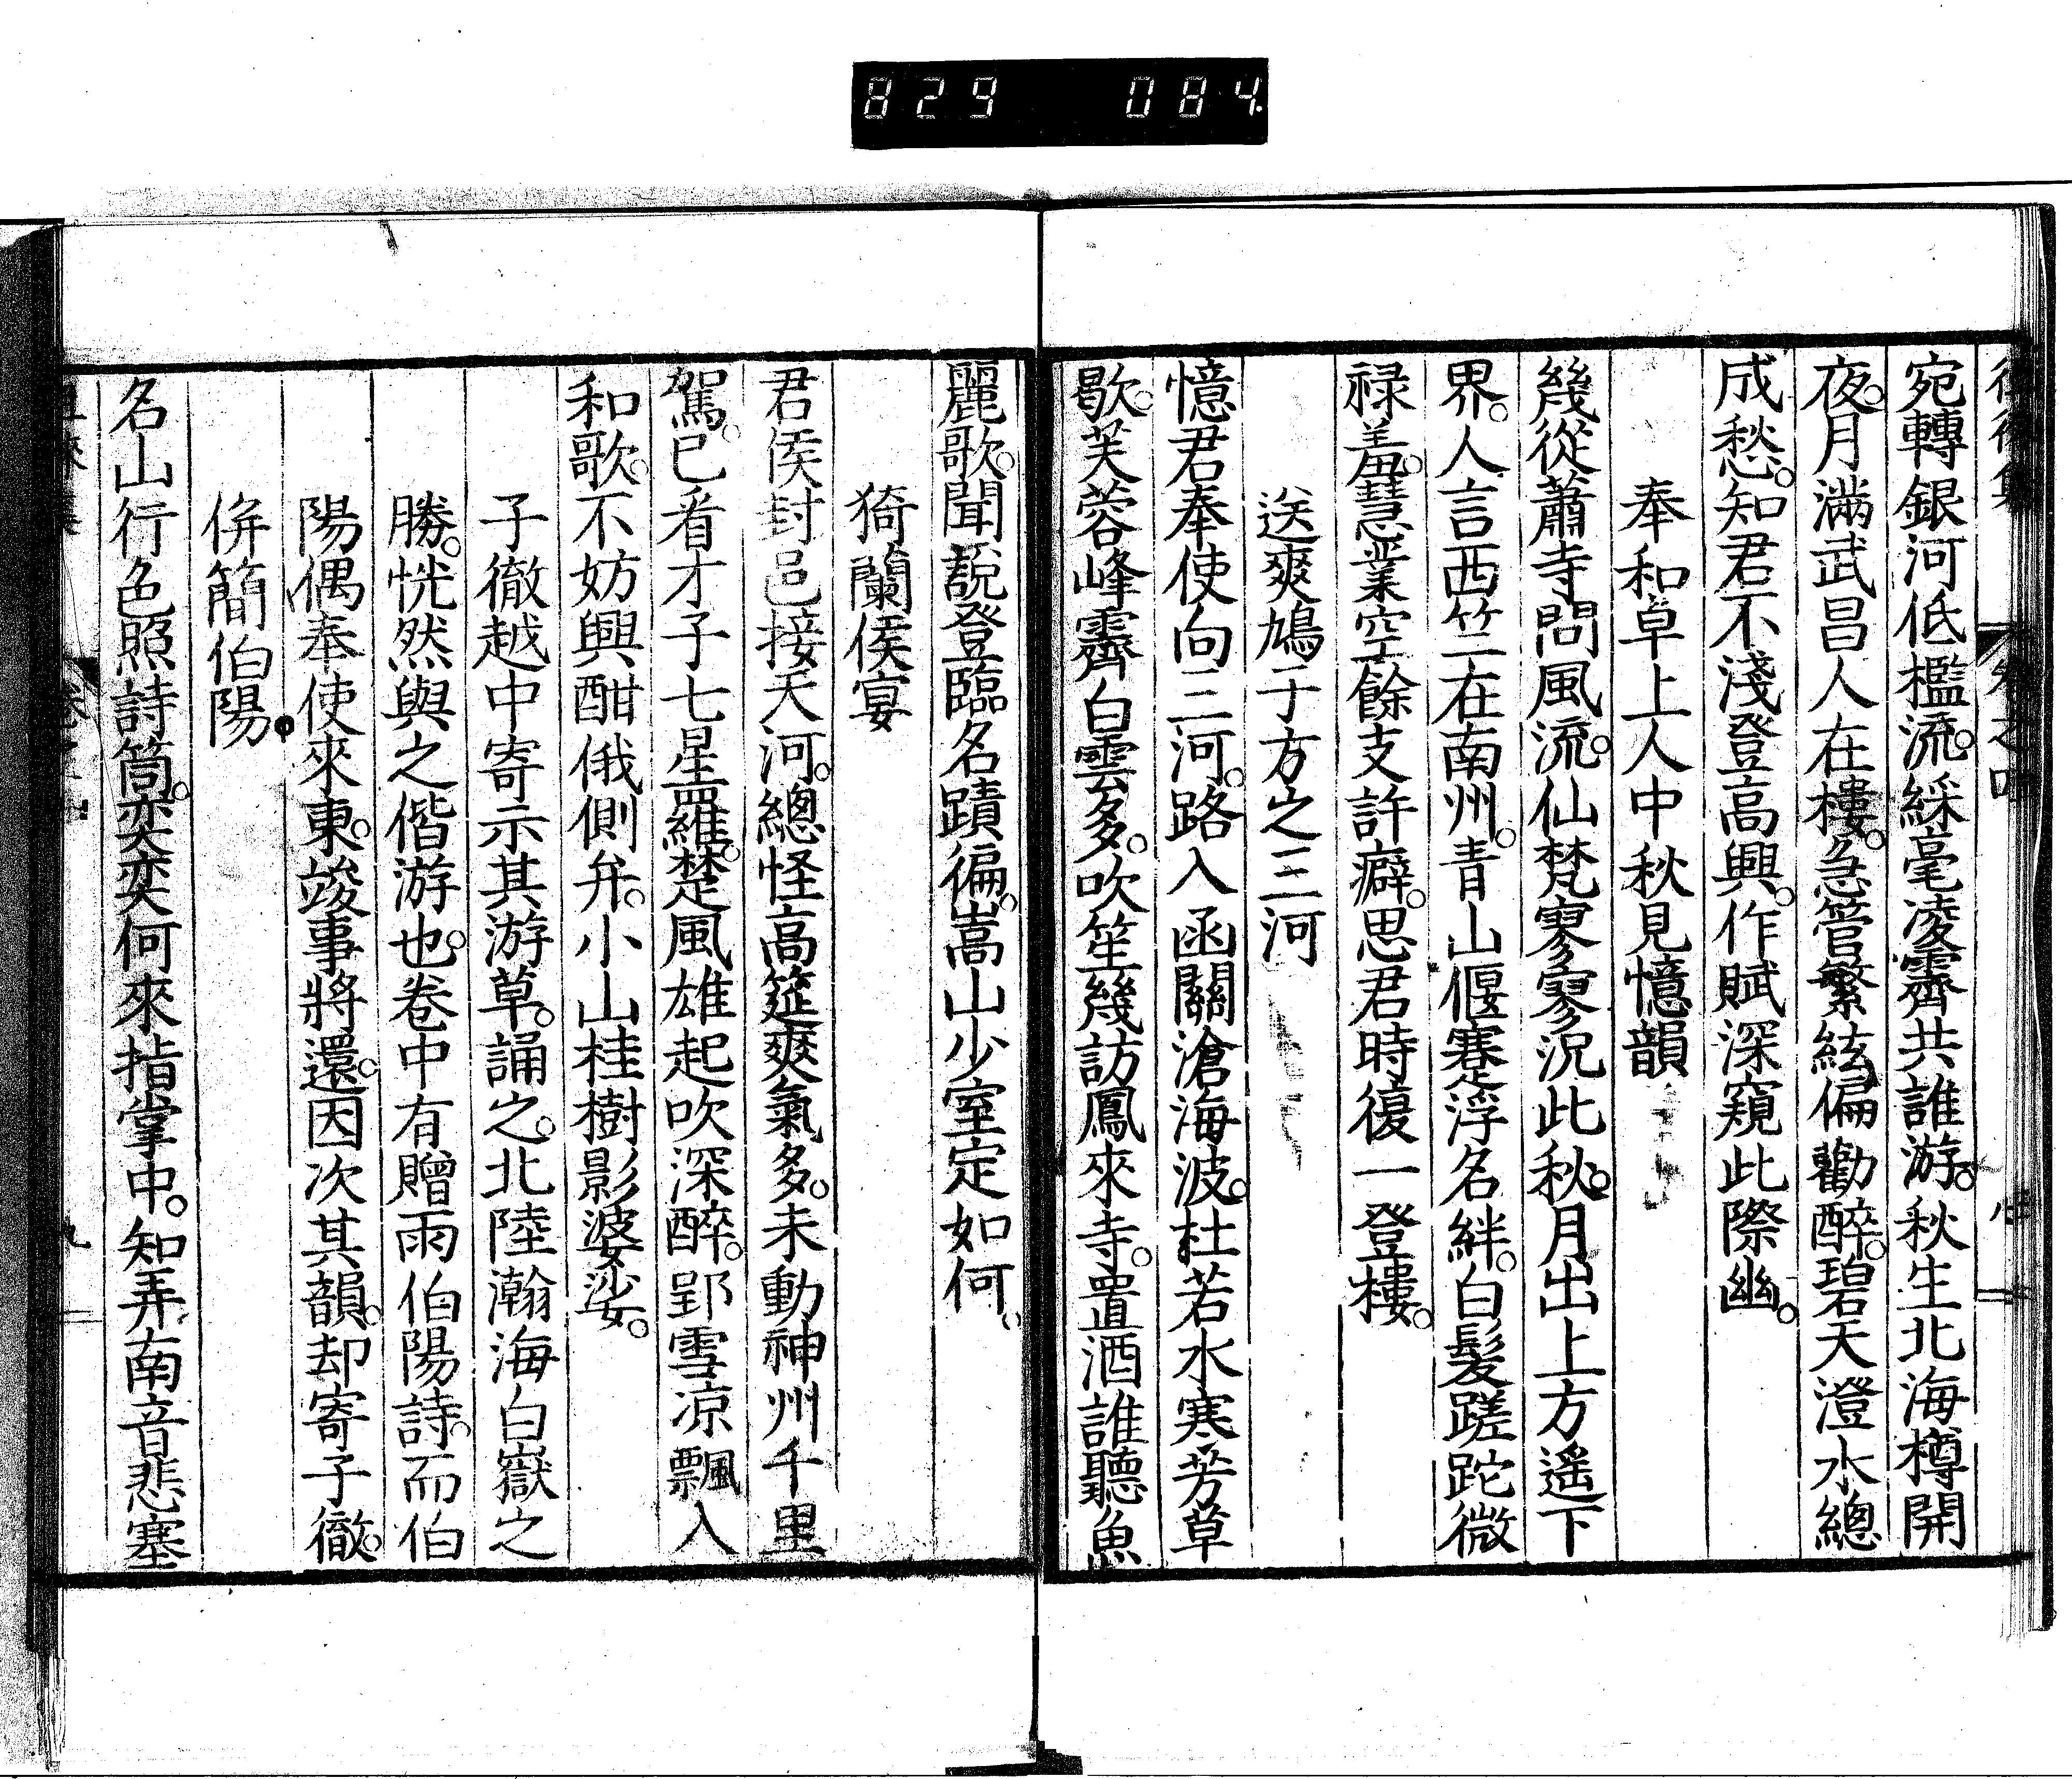 829 084
宛轉銀河低檻流。綵毫凌霽共誰游。秋生北海樽開
夜。月滿武昌人在樓。急管繁絃偏勸醉。碧天澄水總
成愁。知君不淺登高興。作賦深窺此際幽。
奉和卓上人中秋見憶韻
幾從蕭寺問風流。仙梵寥寥況此秋。月出上方遙下
界。人言西竺在南州。青山偃蹇浮名絆。白髮蹉跎微
祿羞。慧業空餘支許癖。思君時復一登樓。
送爽鳩子方之三河
憶君奉使向三河。路入函關滄海波。杜若水寒芳草
歇。芙蓉峰霽白雲多。吹笙幾訪鳳來寺。置酒誰聽魚
麗歌。聞說登臨名蹟徧。嵩山少室定如何。
猗蘭侯宴
君侯封邑接天河。總怪高筵爽氣多。未動神州千里
駕。已看才子七星羅。楚風雄起吹深醉。郢雪凉飄入
和歌。不妨興酣俄側弁。小山桂樹影婆娑。
子徹越中寄示其游草。誦之。北陸瀚海白嶽之
勝。恍然與之偕游也。卷中有贈雨伯陽詩。而伯
陽偶奉使來東。竣事將還。因次其韻。却寄子徹。
併簡伯陽。
名山行色照詩筒。奕奕何來指掌中。知弄南音悲塞